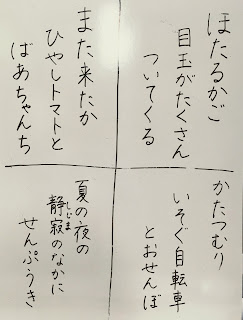 ほたるかご
目玉がたくさん
ついてくる
また来たか
ひやしトマトと
ばあちゃんち
かたつむり
いそぐ自転車
とおせんぼ
夏の夜の
静寂のなかに
しじま
せんぷうき